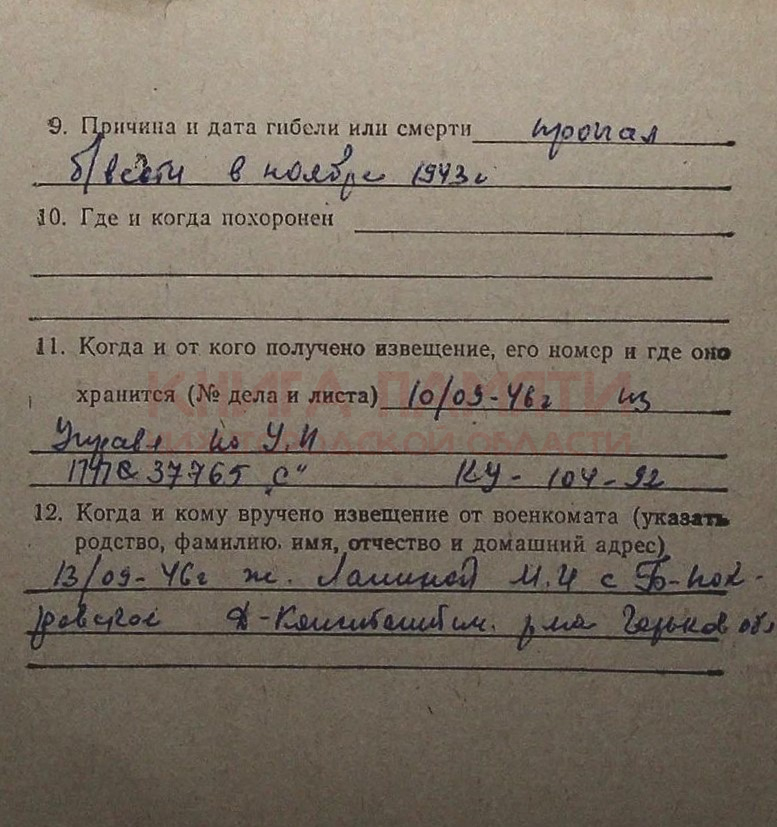 9. Причина и дата гибели или смерти пропал
б/вести в ноябре 1943г
10. Где и когда похоронен
11. Когда и от кого получено извещение, его номер и где оно
хранится (№ дела и листа) 10/09-46г из
КНИГА ПАМЯТИ
Управл по У.П
НИЖЕГОРОДСКОЙ ОБЛАСТИ
37765 „С“ КУ-104-92
12. Когда и кому вручено извещение от военкомата (указать
родство, фамилию, имя, отчество и домашний адрес)
13/09-46г ж. М.И с Б-Пок-
ровское Д-Константин. р-на Горьков обл